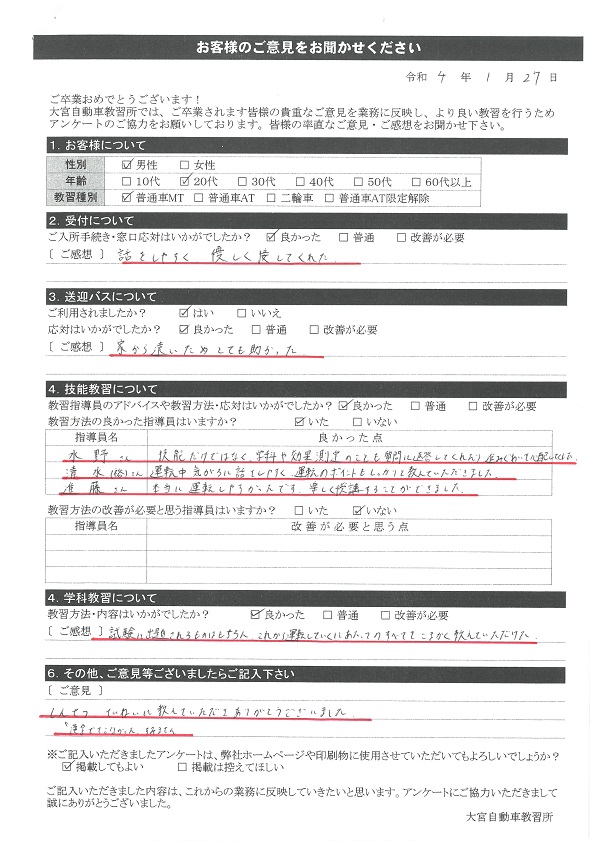 お客様のご意見をお聞かせください
令和 4 年 1 月 27 日
ご卒業おめでとうございます！
大宮自動車教習所では、ご卒業されます皆様の貴重なご意見を業務に反映し、より良い教習を行うため
アンケートのご協力をお願いしております。皆様の率直なご意見・ご感想をお聞かせ下さい。
1. お客様について
性別 ☑男性 □女性
年齢 □10代 ☑20代 □30代 □40代 □50代 □60代以上
教習種別 ☑普通車MT □普通車AT □二輪車 □普通車AT限定解除
2. 受付について
ご入所手続き・窓口応対はいかがでしたか？ ☑良かった □普通 □改善が必要
［ご感想］ 話をしやすく 優しく接してくれた
3. 送迎バスについて
ご利用されましたか？ ☑はい □いいえ
応対はいかがでしたか？ ☑良かった □普通 □改善が必要
［ご感想］ 家から遠いためとても助かった
4. 技能教習について
教習指導員のアドバイスや教習方法・応対はいかがでしたか？ ☑良かった □普通 □改善が必要
教習方法の良かった指導員はいますか？ ☑いた □いない
指導員名 良かった点
水野さん 技能だけではなく、学科や効果測定のことも質問に返答してくれたり
清水さん 運転中気がるに話しやすく、運転のポイントもしっかりと教えていただきました
進藤さん 本当に運転しやすかったです。楽しく受講することができました。
教習方法の改善が必要と思う指導員はいますか？ □いた ☑いない
指導員名 改善が必要と思う点
4. 学科教習について
教習方法・内容はいかがでしたか？ ☑良かった □普通 □改善が必要
［ご感想］ 試験に出題されるものはもちろん、これから運転していくにあたってのすべてをこまかく教えていただけた
6. その他、ご意見等ございましたらご記入下さい
［ご意見］
しんせつ ていねいに教えていただきありがとうございました
※ご記入いただきましたアンケートは、弊社ホームページや印刷物に使用させていただいてもよろしいでしょうか？
☑掲載してもよい □掲載は控えてほしい
ご記入いただきました内容は、これからの業務に反映していきたいと思います。アンケートにご協力いただきまして
誠にありがとうございました。
大宮自動車教習所